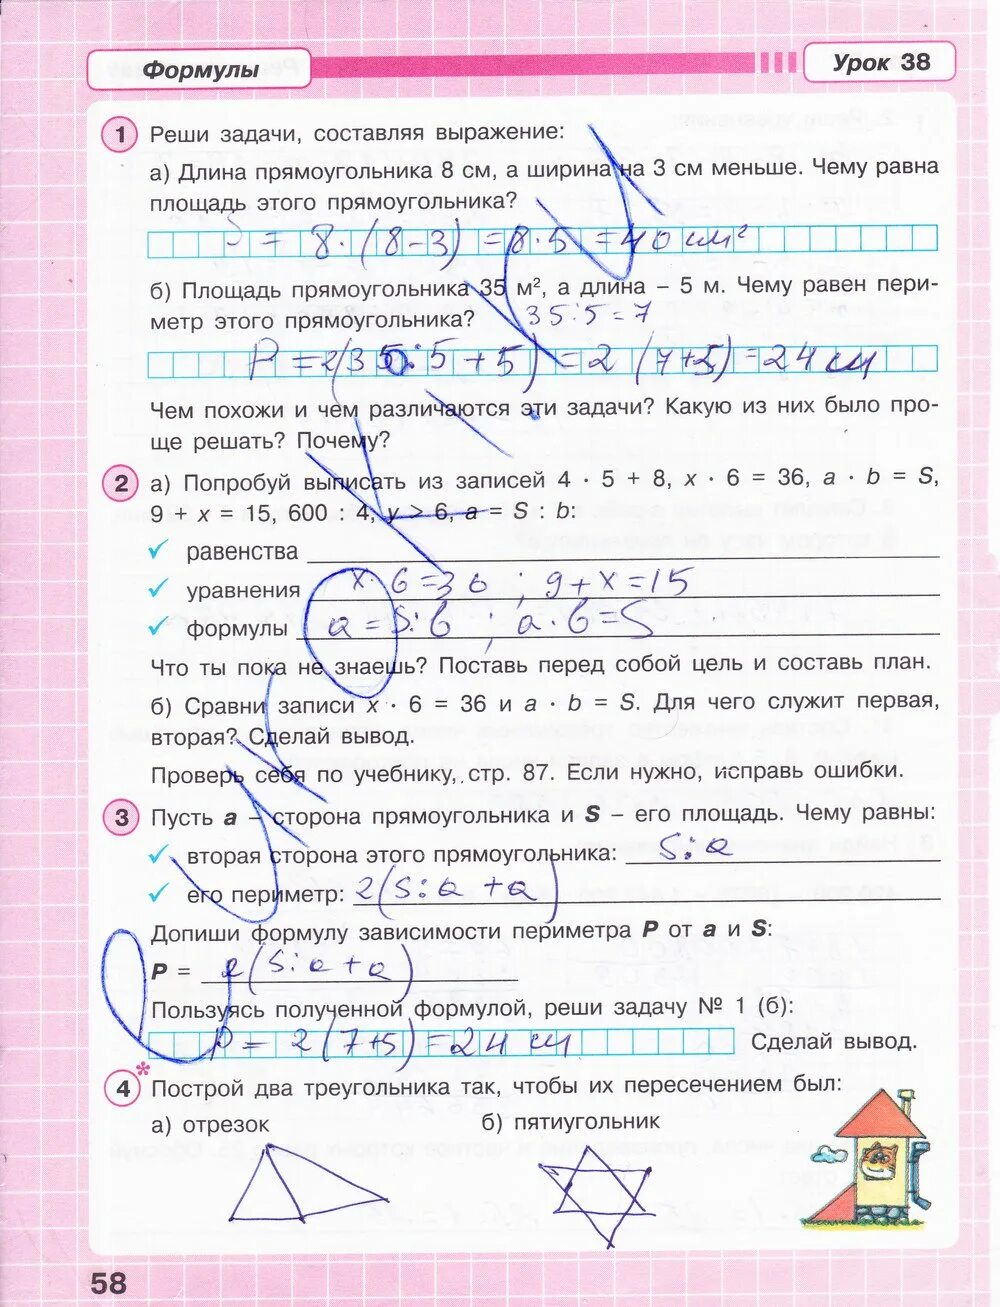 Формулы
Урок 38
1 Реши задачи, составляя выражение:
а) Длина прямоугольника 8 см, а ширина на 3 см меньше. Чему равна
площадь этого прямоугольника?
S = 8 · (8 - 3) = 8 · 5 = 40 см²
б) Площадь прямоугольника 35 м², а длина – 5 м. Чему равен пери-
метр этого прямоугольника? 35:5=7
P = 2(35:5 + 5) = 2 (7+5) = 24 см
Чем похожи и чем различаются эти задачи? Какую из них было про-
ще решать? Почему?
2 а) Попробуй выписать из записей 4 · 5 + 8, x · 6 = 36, a · b = S,
9 + x = 15, 600 : 4, y > 6, a = S : b:
равенства
уравнения x · 6 = 36 ; 9 + x = 15
формулы a = S:b ; a · b = S
Что ты пока не знаешь? Поставь перед собой цель и составь план.
б) Сравни записи x · 6 = 36 и a · b = S. Для чего служит первая,
вторая? Сделай вывод.
Проверь себя по учебнику, стр. 87. Если нужно, исправь ошибки.
3 Пусть a – сторона прямоугольника и S – его площадь. Чему равны:
вторая сторона этого прямоугольника: S:a
его периметр: 2(S:a + a)
Допиши формулу зависимости периметра P от a и S:
P = 2(S:a + a)
Пользуясь полученной формулой, реши задачу № 1 (б):
P = 2(7+5) = 24 см Сделай вывод.
4* Построй два треугольника так, чтобы их пересечением был:
а) отрезок б) пятиугольник
58